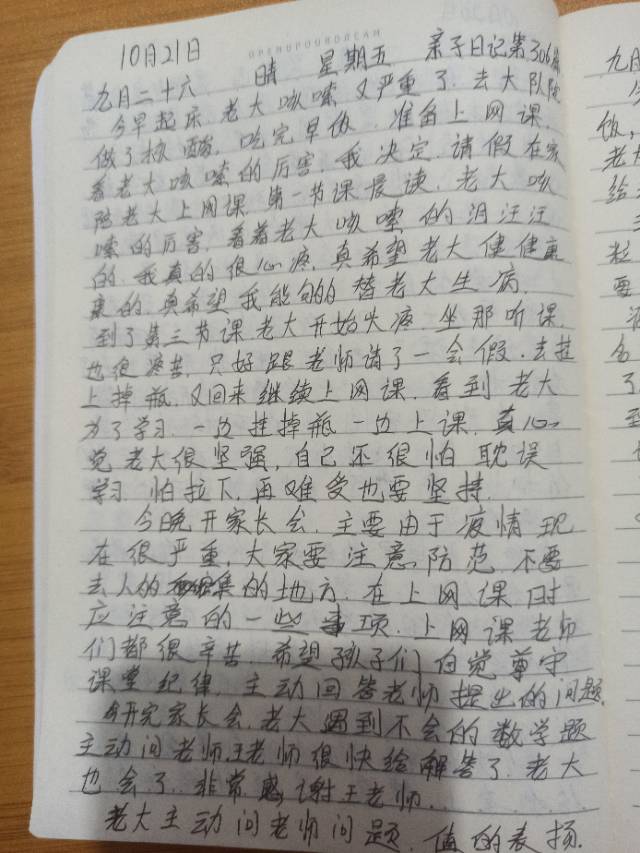 OPENUPYOURDREAM
10月21日
九月二十六 晴 星期五 亲子日记第306篇
今早起床,老大咳嗽又严重了.去大队院
做了核酸,吃完早饭.准备上网课,
看老大咳嗽的厉害,我决定.请假在家
陪老大上网课,第一节课晨读,老大咳
嗽的厉害,看着老大咳嗽的泪汪汪
的.我真的很心疼,真希望老大健健康
康的.真希望我能够的替老大生病.
到了第三节课老大开始头疼.坐那听课,
也很疼苦,只好跟老师请了一会假.去挂
上掉瓶,又回来继续上网课,看到老大
为了学习.一边挂掉瓶一边上课,真心
觉老大很坚强,自己还很怕耽误
学习,怕拉下,再难受也要坚持.
今晚开家长会,主要由于疫情现
在很严重,大家要注意防范,不要
去人的密集的地方,在上网课时
应注意的一些事项.上网课老师
们都很辛苦.希望孩子们自觉尊守
课堂纪律,主动回答老师提出的问题.
今开完家长会,老大遇到不会的数学题
主动问老师,王老师很快给解答了.老大
也会了.非常感谢王老师.
老大主动问老师问题,值的表扬.
九月
饭,
老大
给
粒
要
名
了
到